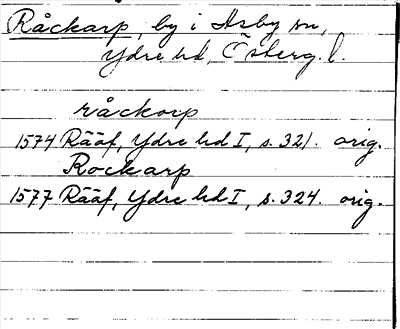 Råckarp, by i Asby sn,
Ydre hd, Österg. l.
råckorp
1574 Rääf, Ydre hd I, s. 321. orig.
Rockarp
1577 Rääf, Ydre hd I, s. 324. orig.